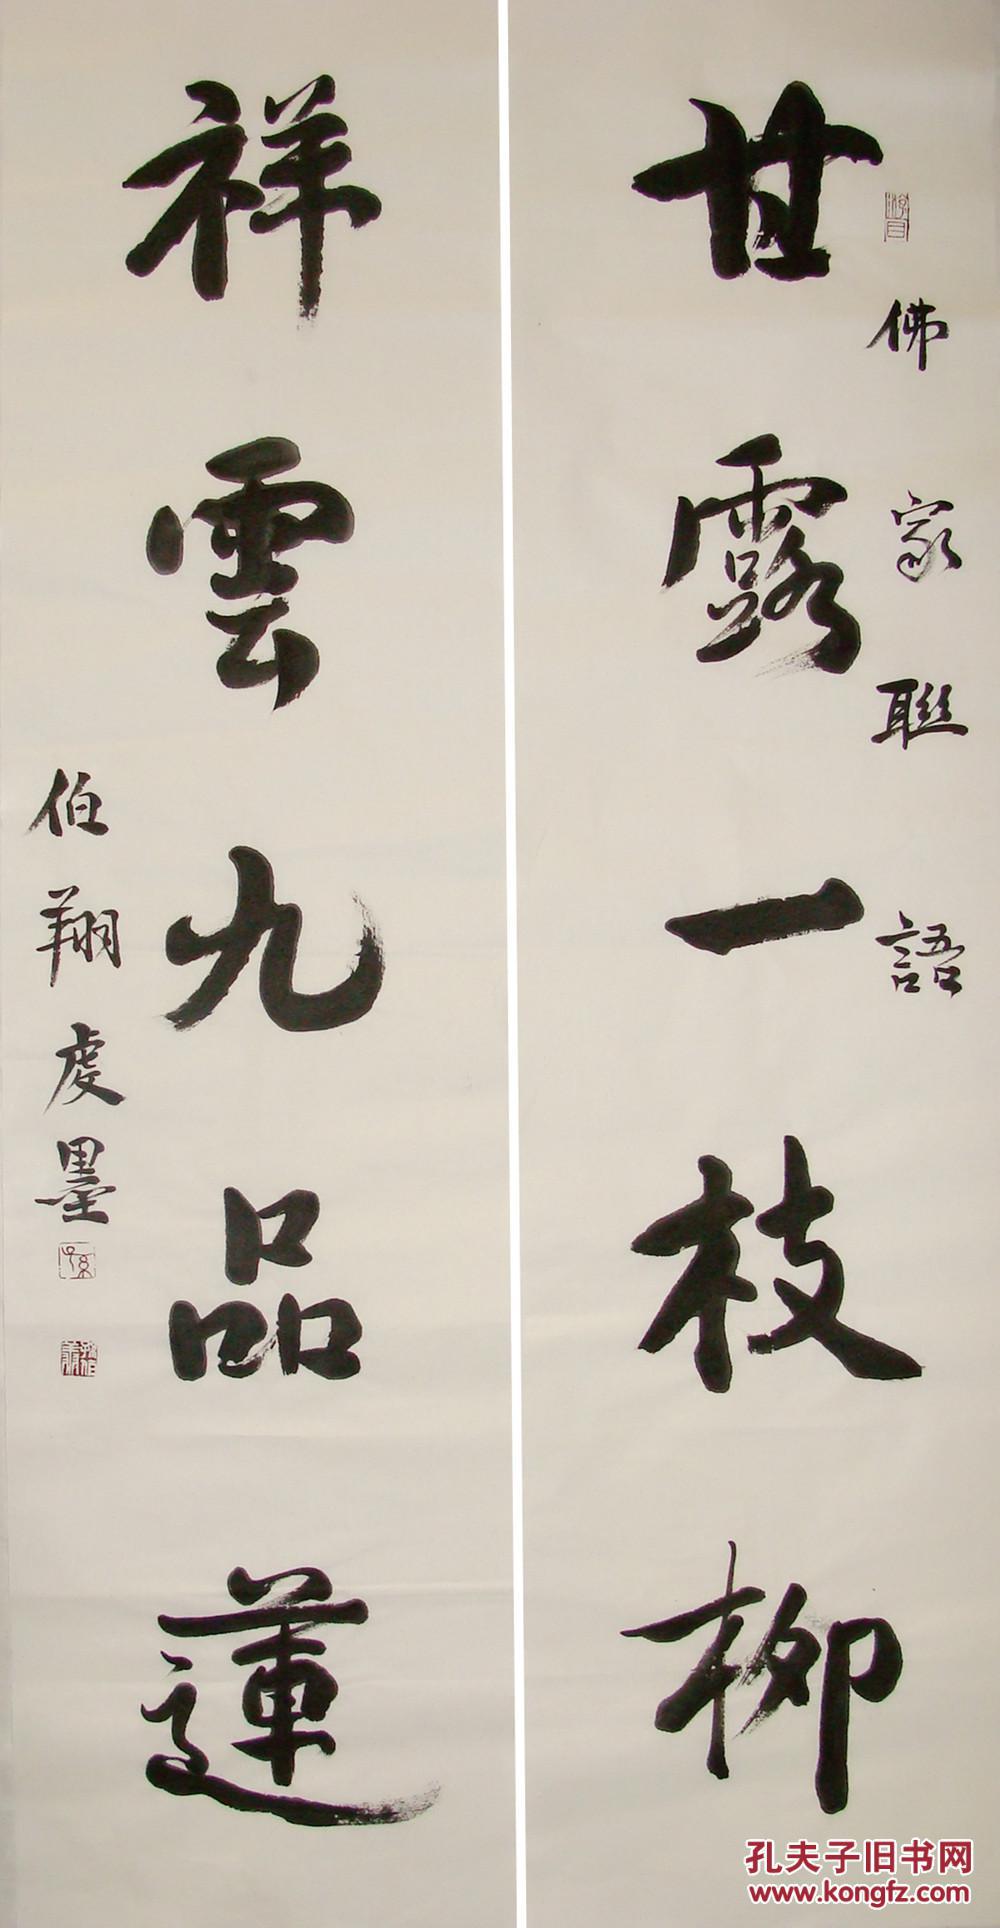 甘露一枝柳
佛家聯語
祥雲九品蓮
伯翔虔墨
孔夫子旧书网
www.kongfz.com